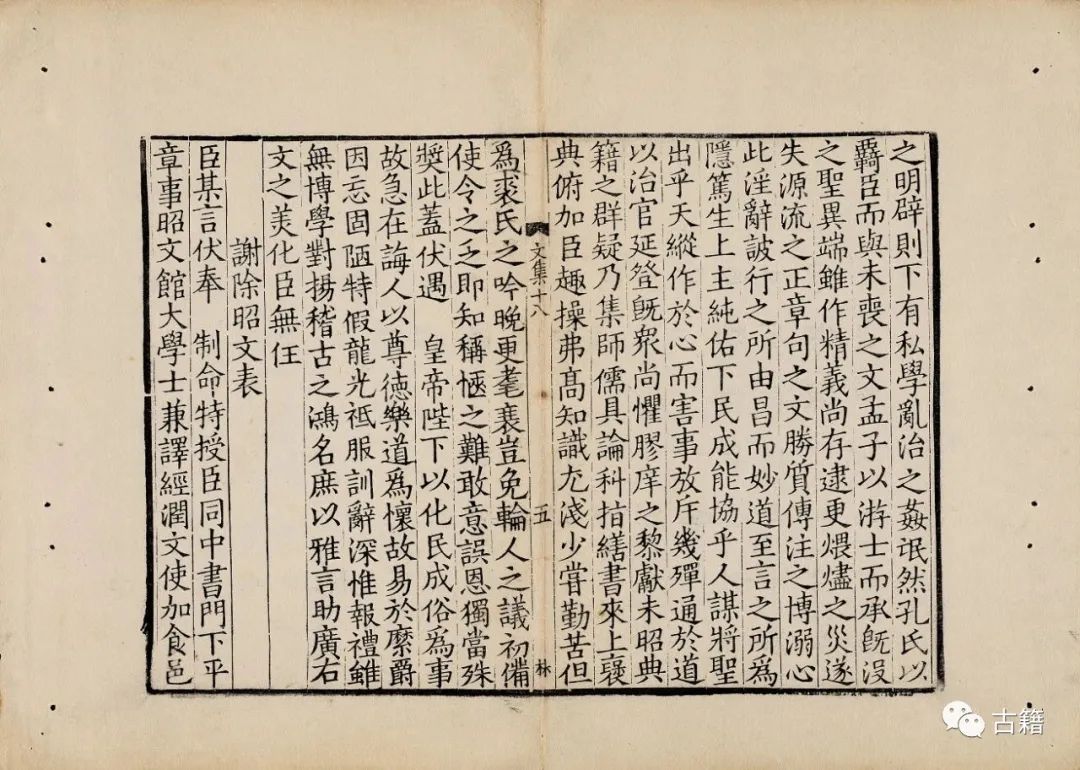 之明辟則下有私學亂治之姦氓然孔氏以
羇臣而與未喪之文孟子以游士而承旣沒
之聖異端雖作精義尚存逮更煨燼之災遂
失源流之正章句之文勝質傳注之博溺心
此淫辭詖行之所由昌而妙道至言之所爲
隱篤生上主純佑下民成能協乎人謀將聖
出乎天縱作於心而害事放斥幾殫通於道
以治官延登旣衆尚懼膠庠之黎獻未昭典
籍之群疑乃集師儒具論科指繕書來上裦
典俯加臣趣操弗髙知識尤淺少嘗勤苦但
文集十八
五
林
爲裘氏之吟晚更耄衰豈免輪人之議初備
使令之乏即知稱愜之難敢意誤恩獨當殊
奬此蓋伏遇 皇帝陛下以化民成俗爲事
故急在誨人以尊德樂道爲懷故易於縻爵
因忘固陋特假龍光祗服訓辭深惟報禮雖
無博學對揚稽古之鴻名庶以雅言助廣右
文之美化臣無任
謝除昭文表
臣某言伏奉 制命特授臣同中書門下平
章事昭文館大學士兼譯經潤文使加食邑
古籍